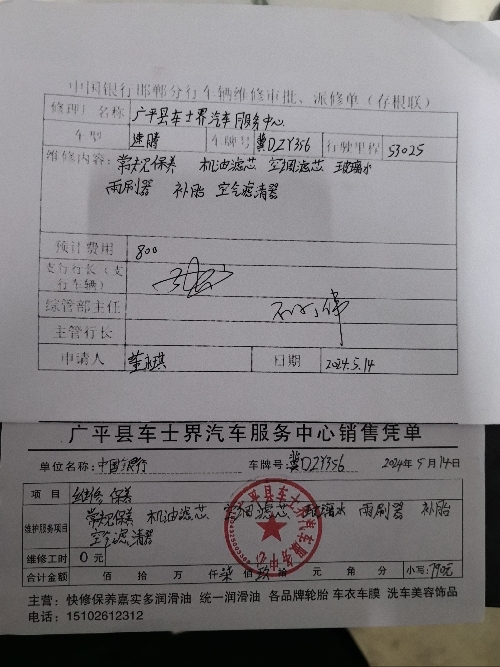 中国银行邯郸分行车辆维修审批、派修单（存根联）
修理厂名称 广平县车士界汽车服务中心
车型 速腾 车牌号 冀DZY356 行驶里程 53025
维修内容：常规保养 机油滤芯 空调滤芯 玻璃水
雨刷器 补胎 空气滤清器
预计费用 800
支行行长（支
行车辆）
综管部主任
主管行长
申请人 董琪 日期 2024.5.14
广平县车士界汽车服务中心销售凭单
单位名称：中国银行 车牌号：冀DZY356 2024年5月14日
项目 维修 保养
维护服务项目 常规保养 机油滤芯 空调滤芯 玻璃水 雨刷器 补胎
空气滤清器
维修工时 0元
合计金额 佰 拾 万 仟 柒 佰 玖 拾 元 角 分 小写：790元
主营：快修保养嘉实多润滑油 统一润滑油 各品牌轮胎 车衣车膜 洗车美容饰品
电话：15102612312